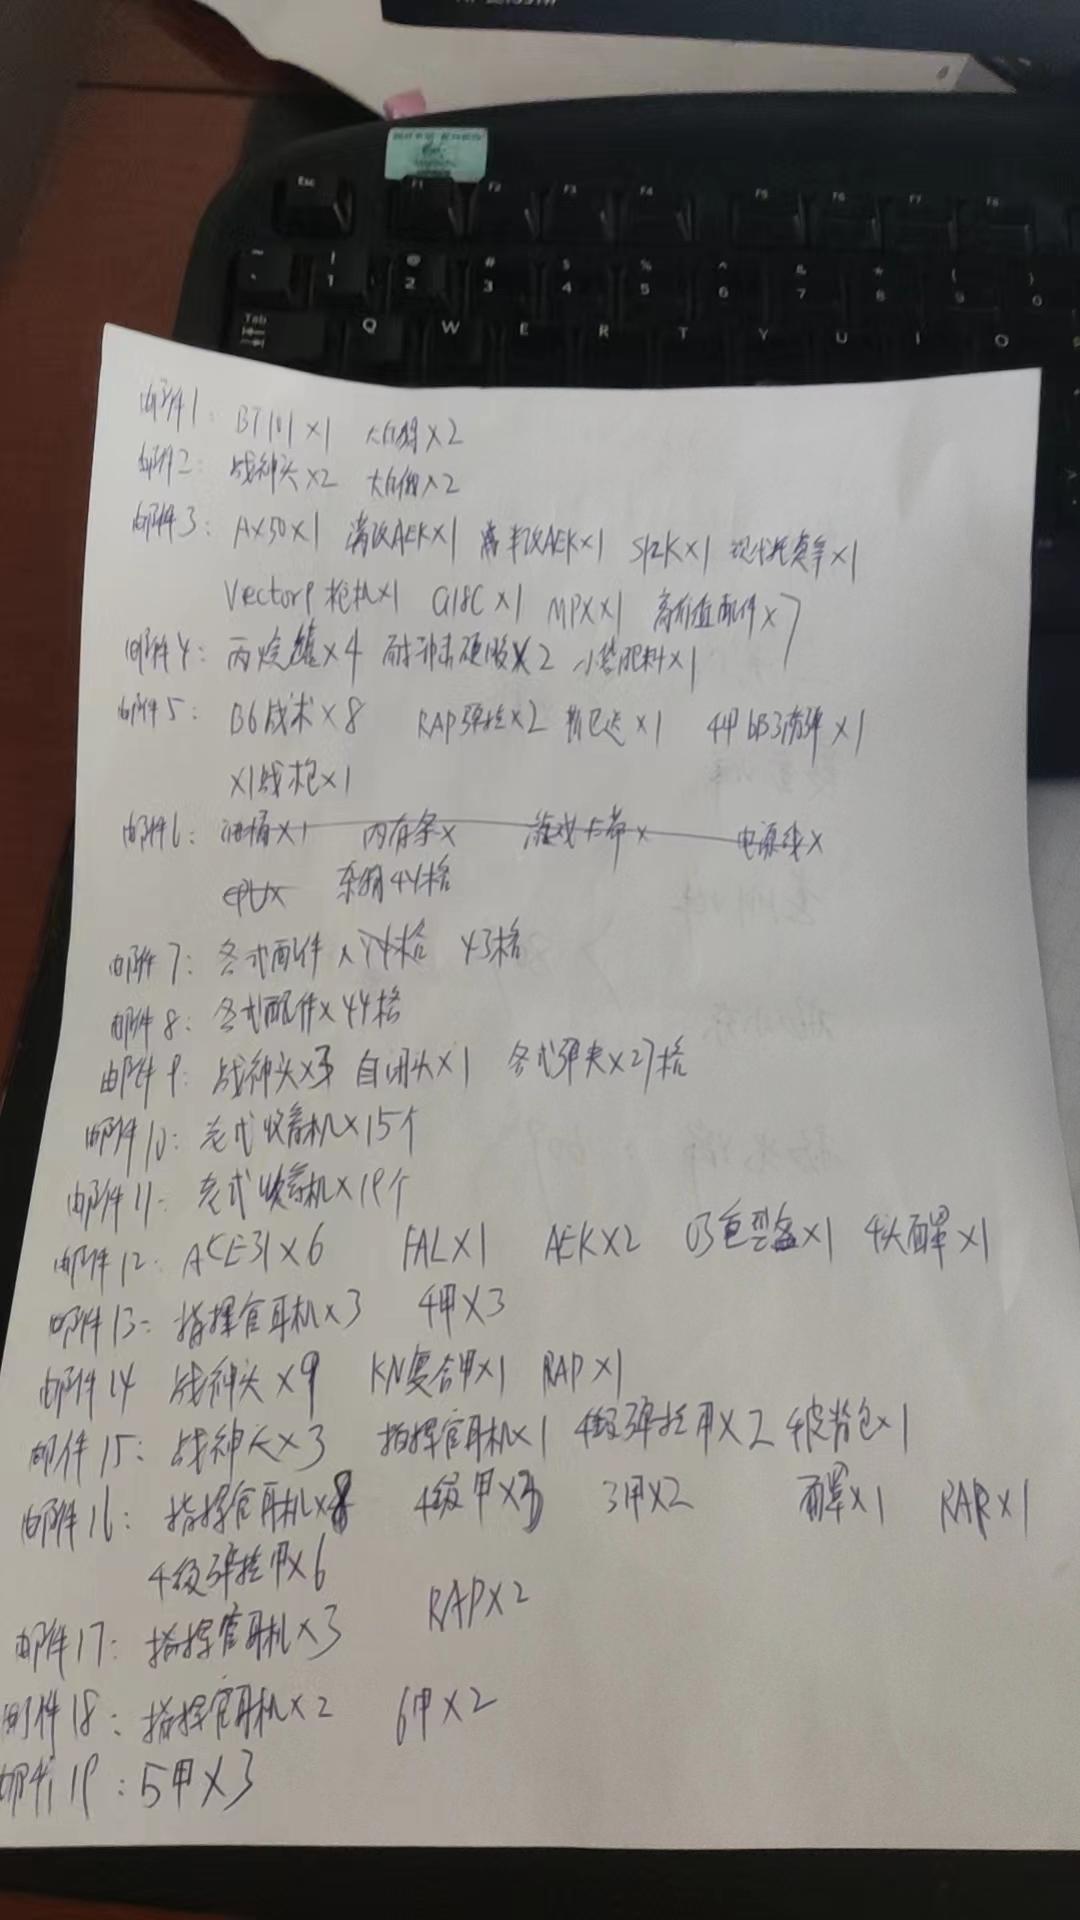 Esc F1 F2 F3 F4 F5 F6 F7 F8
~ ! @ # $ % ^ & * (
1 2 3 4 5 6 7 8 9 0
Tab Q W E R T Y U I O
邮件1: BT101×1 ×2
邮件2: 战神头×2 ×2
邮件3: AX50×1 满改AEK×1 半改AEK×1 ×1 ×1
Vector 枪机×1 G18C×1 MPX×1 高价值配件×7
邮件4: 丙烷罐×4 耐冲击硬×2 小袋肥料×1
邮件5: B6战术×8 RAP弹挂×2 ×1 4甲 ×1
×1战枪×1
邮件6: 油桶×1 内存条× 游戏卡带× 电源线×
cpu× 杂物44格
邮件7: 各式配件×44格 43格
邮件8: 各式配件×44格
邮件9: 战神头×3 自闭头×1 各式弹夹×27格
邮件10: 老式收音机×15个
邮件11: 老式收音机×19个
邮件12: ACE31×6 FAL×1 AEK×2 ×1 4头面罩×1
邮件13: 指挥官耳机×3 4甲×3
邮件14 战神头×9 KN复合甲×1 RAP×1
邮件15: 战神头×3 指挥官耳机×1 4级弹挂甲×2 背包×1
邮件16: 指挥官耳机×8 4级甲×3 3甲×2 面罩×1 RAR×1
4级弹挂甲×6
邮件17: 指挥官耳机×3 RAP×2
邮件18: 指挥官耳机×2 6甲×2
邮件19: 5甲×3